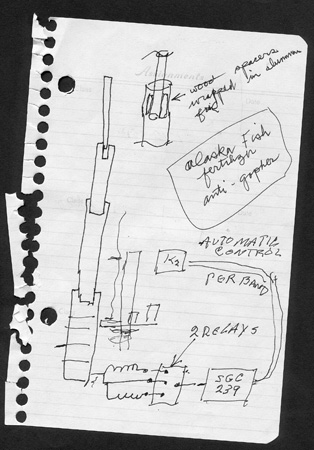 wood spacers
wrapped in aluminum
foil
alaska Fish
fertilizer
anti-gopher
AUTOMATIC
CONTROL
K2
PER BAND
2 RELAYS
SGC
239